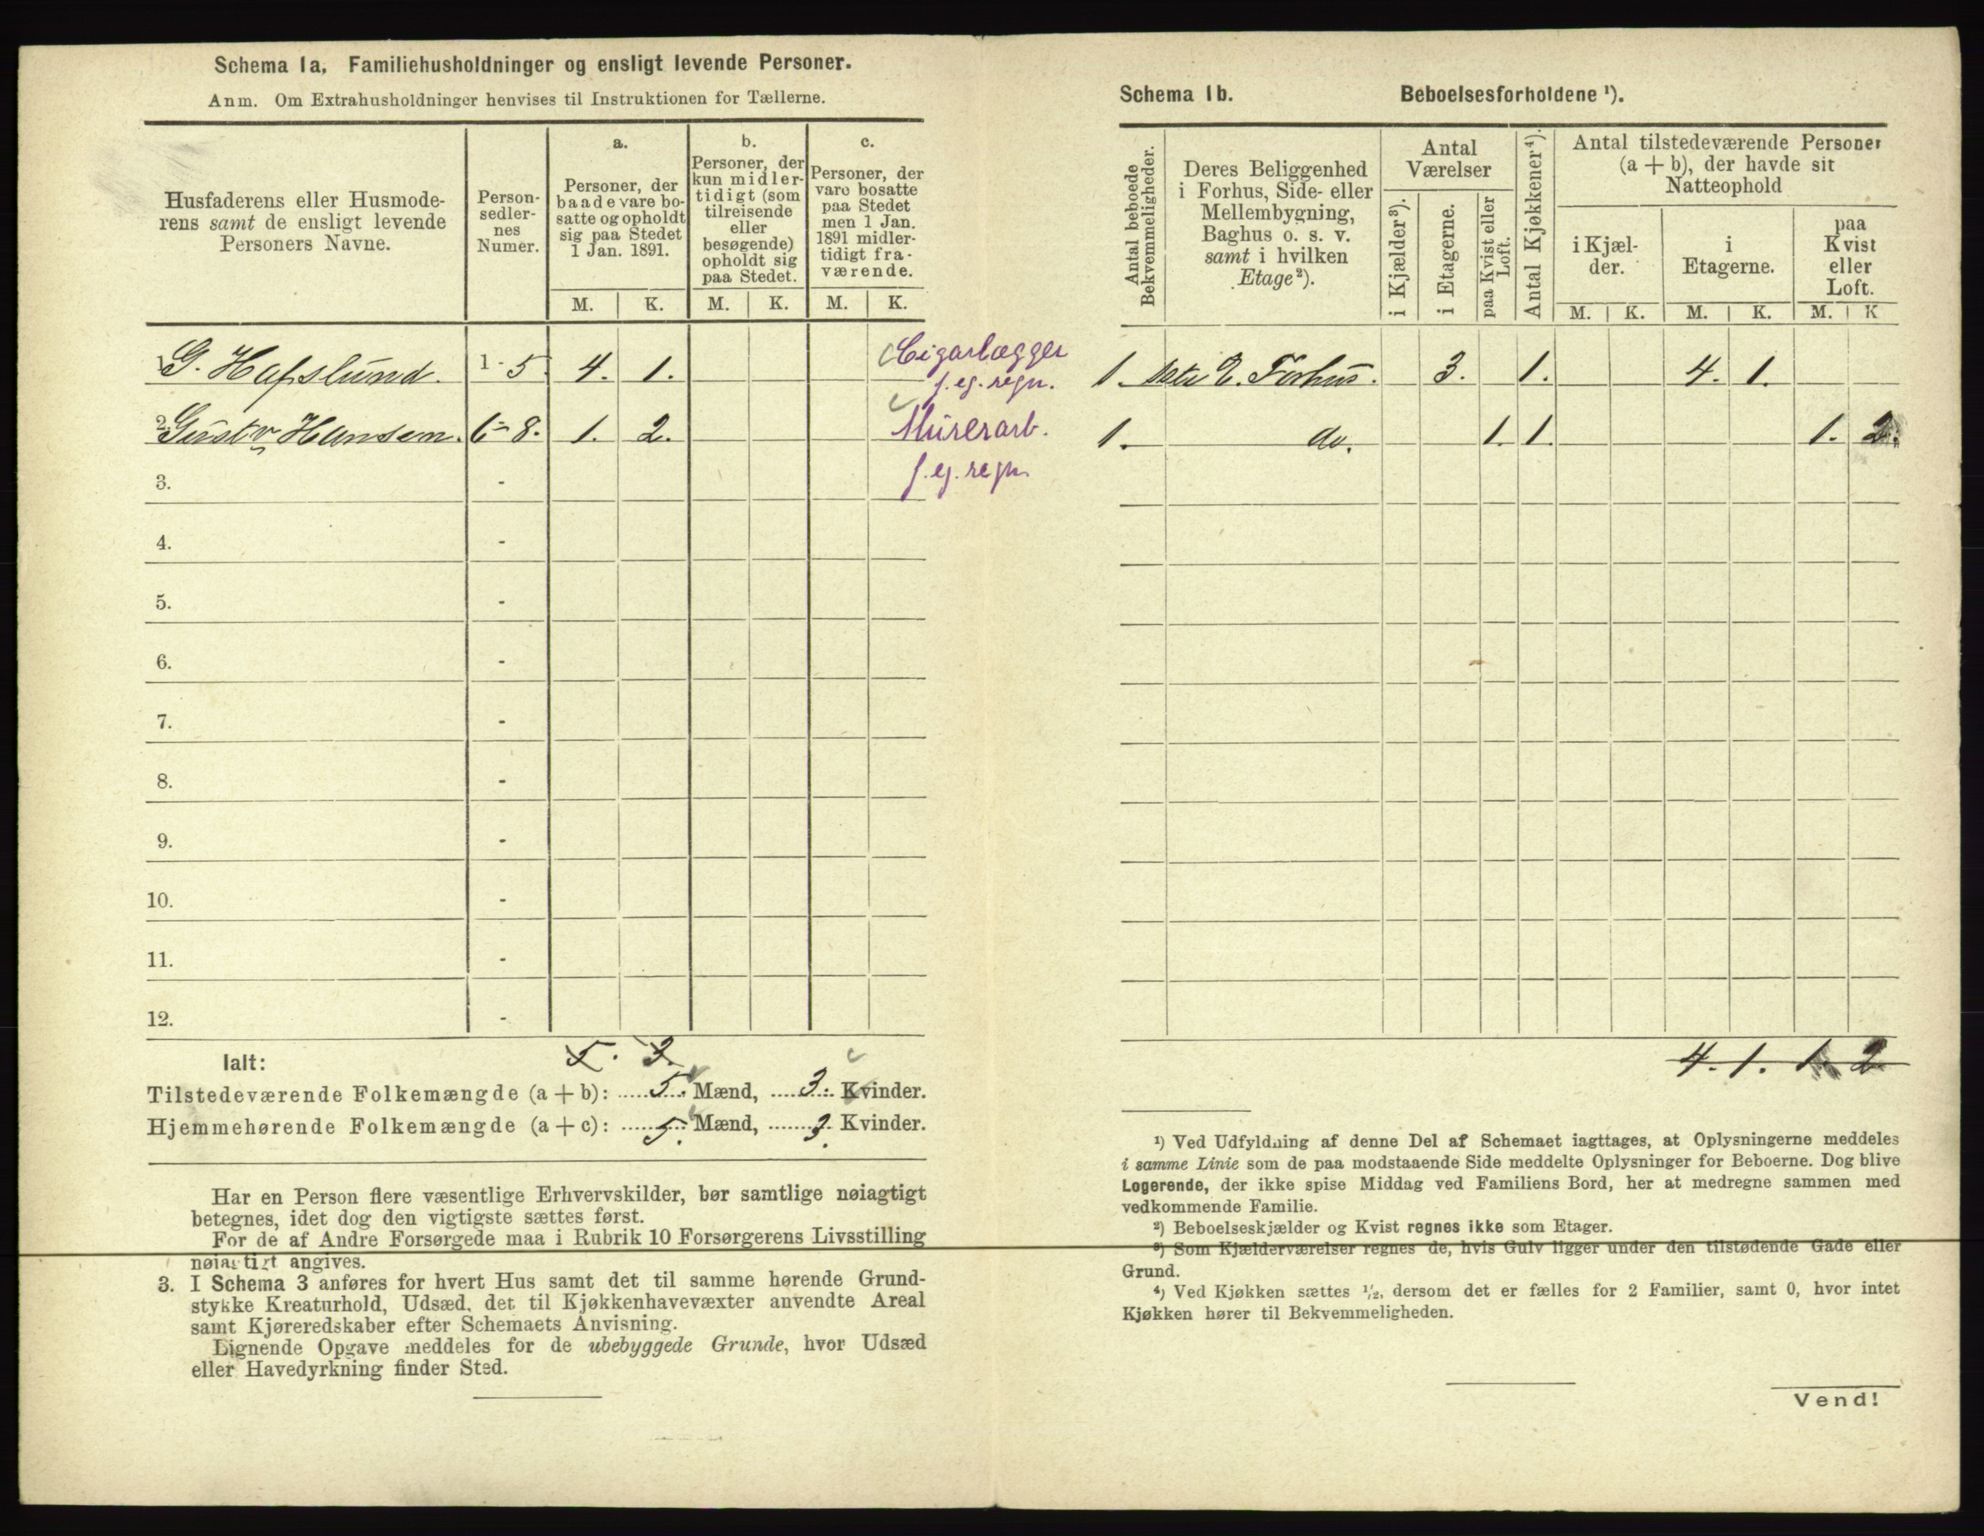 Schema 1a, Familiehusholdninger og ensligt levende Personer.
Anm. Om Extrahusholdninger henvises til Instruktionen for Tællerne.
Husfaderens eller Husmode-
rens samt de ensligt levende
Personers Navne.
Person-
sedler-
nes
Numer.
a.
Personer, der
baade vare bo-
satte og opholdt
sig paa Stedet
1 Jan. 1891.
b.
Personer, der
kun midler-
tidigt (som
tilreisende
eller
besøgende)
opholdt sig
paa Stedet.
c.
Personer, der
vare bosatte
paa Stedet
men 1 Jan.
1891 midler-
tidigt fra-
værende.
M. K. M. K. M. K.
1 G. Hafslund. 1-5 4. 1. Cigarlægger
f. eg. regn.
2 Gustav Hansen. 6-8. 1. 2. Murerarb.
f. eg. regn.
3. -
4. -
5. -
6. -
7. -
8. -
9. -
10. -
11. -
12. -
Ialt: 5. 3.
Tilstedeværende Folkemængde (a + b): 5. Mænd, 3. Kvinder.
Hjemmehørende Folkemængde (a + c): 5. Mænd, 3. Kvinder.
Har en Person flere væsentlige Erhvervskilder, bør samtlige nøiagtigt
betegnes, idet dog den vigtigste sættes først.
For de af Andre Forsørgede maa i Rubrik 10 Forsørgerens Livsstilling
nøiagtigt angives.
3. I Schema 3 anføres for hvert Hus samt det til samme hørende Grund-
stykke Kreaturhold, Udsæd, det til Kjøkkenhavevæxter anvendte Areal
samt Kjøreredskaber efter Schemaets Anvisning.
Lignende Opgave meddeles for de ubebyggede Grunde, hvor Udsæd
eller Havedyrkning finder Sted.
Schema 1b. Beboelsesforholdene ¹).
Antal beboede
Bekvemmeligheder.
Deres Beliggenhed
i Forhus, Side- eller
Mellembygning,
Baghus o. s. v.
samt i hvilken
Etage²).
Antal
Værelser
i Kjælder³).
i Etagerne.
paa Kvist eller
Loft.
Antal Kjøkkener⁴).
Antal tilstedeværende Personer
(a + b), der havde sit
Natteophold
i Kjæl-
der.
i
Etagerne.
paa
Kvist
eller
Loft.
M. K. M. K. M. K
1. 1ste E. Forhus. 3. 1. 4. 1.
1. do. 1. 1. 1. 2.
4. 1. 1. 2
¹) Ved Udfyldning af denne Del af Schemaet iagttages, at Oplysningerne meddeles
i samme Linie som de paa modstaaende Side meddelte Oplysninger for Beboerne. Dog blive
Logerende, der ikke spise Middag ved Familiens Bord, her at medregne sammen med
vedkommende Familie.
²) Beboelseskjælder og Kvist regnes ikke som Etager.
³) Som Kjælderværelser regnes de, hvis Gulv ligger under den tilstødende Gade eller
Grund.
⁴) Ved Kjøkken sættes 1/2, dersom det er fælles for 2 Familier, samt 0, hvor intet
Kjøkken hører til Bekvemmeligheden.
Vend!